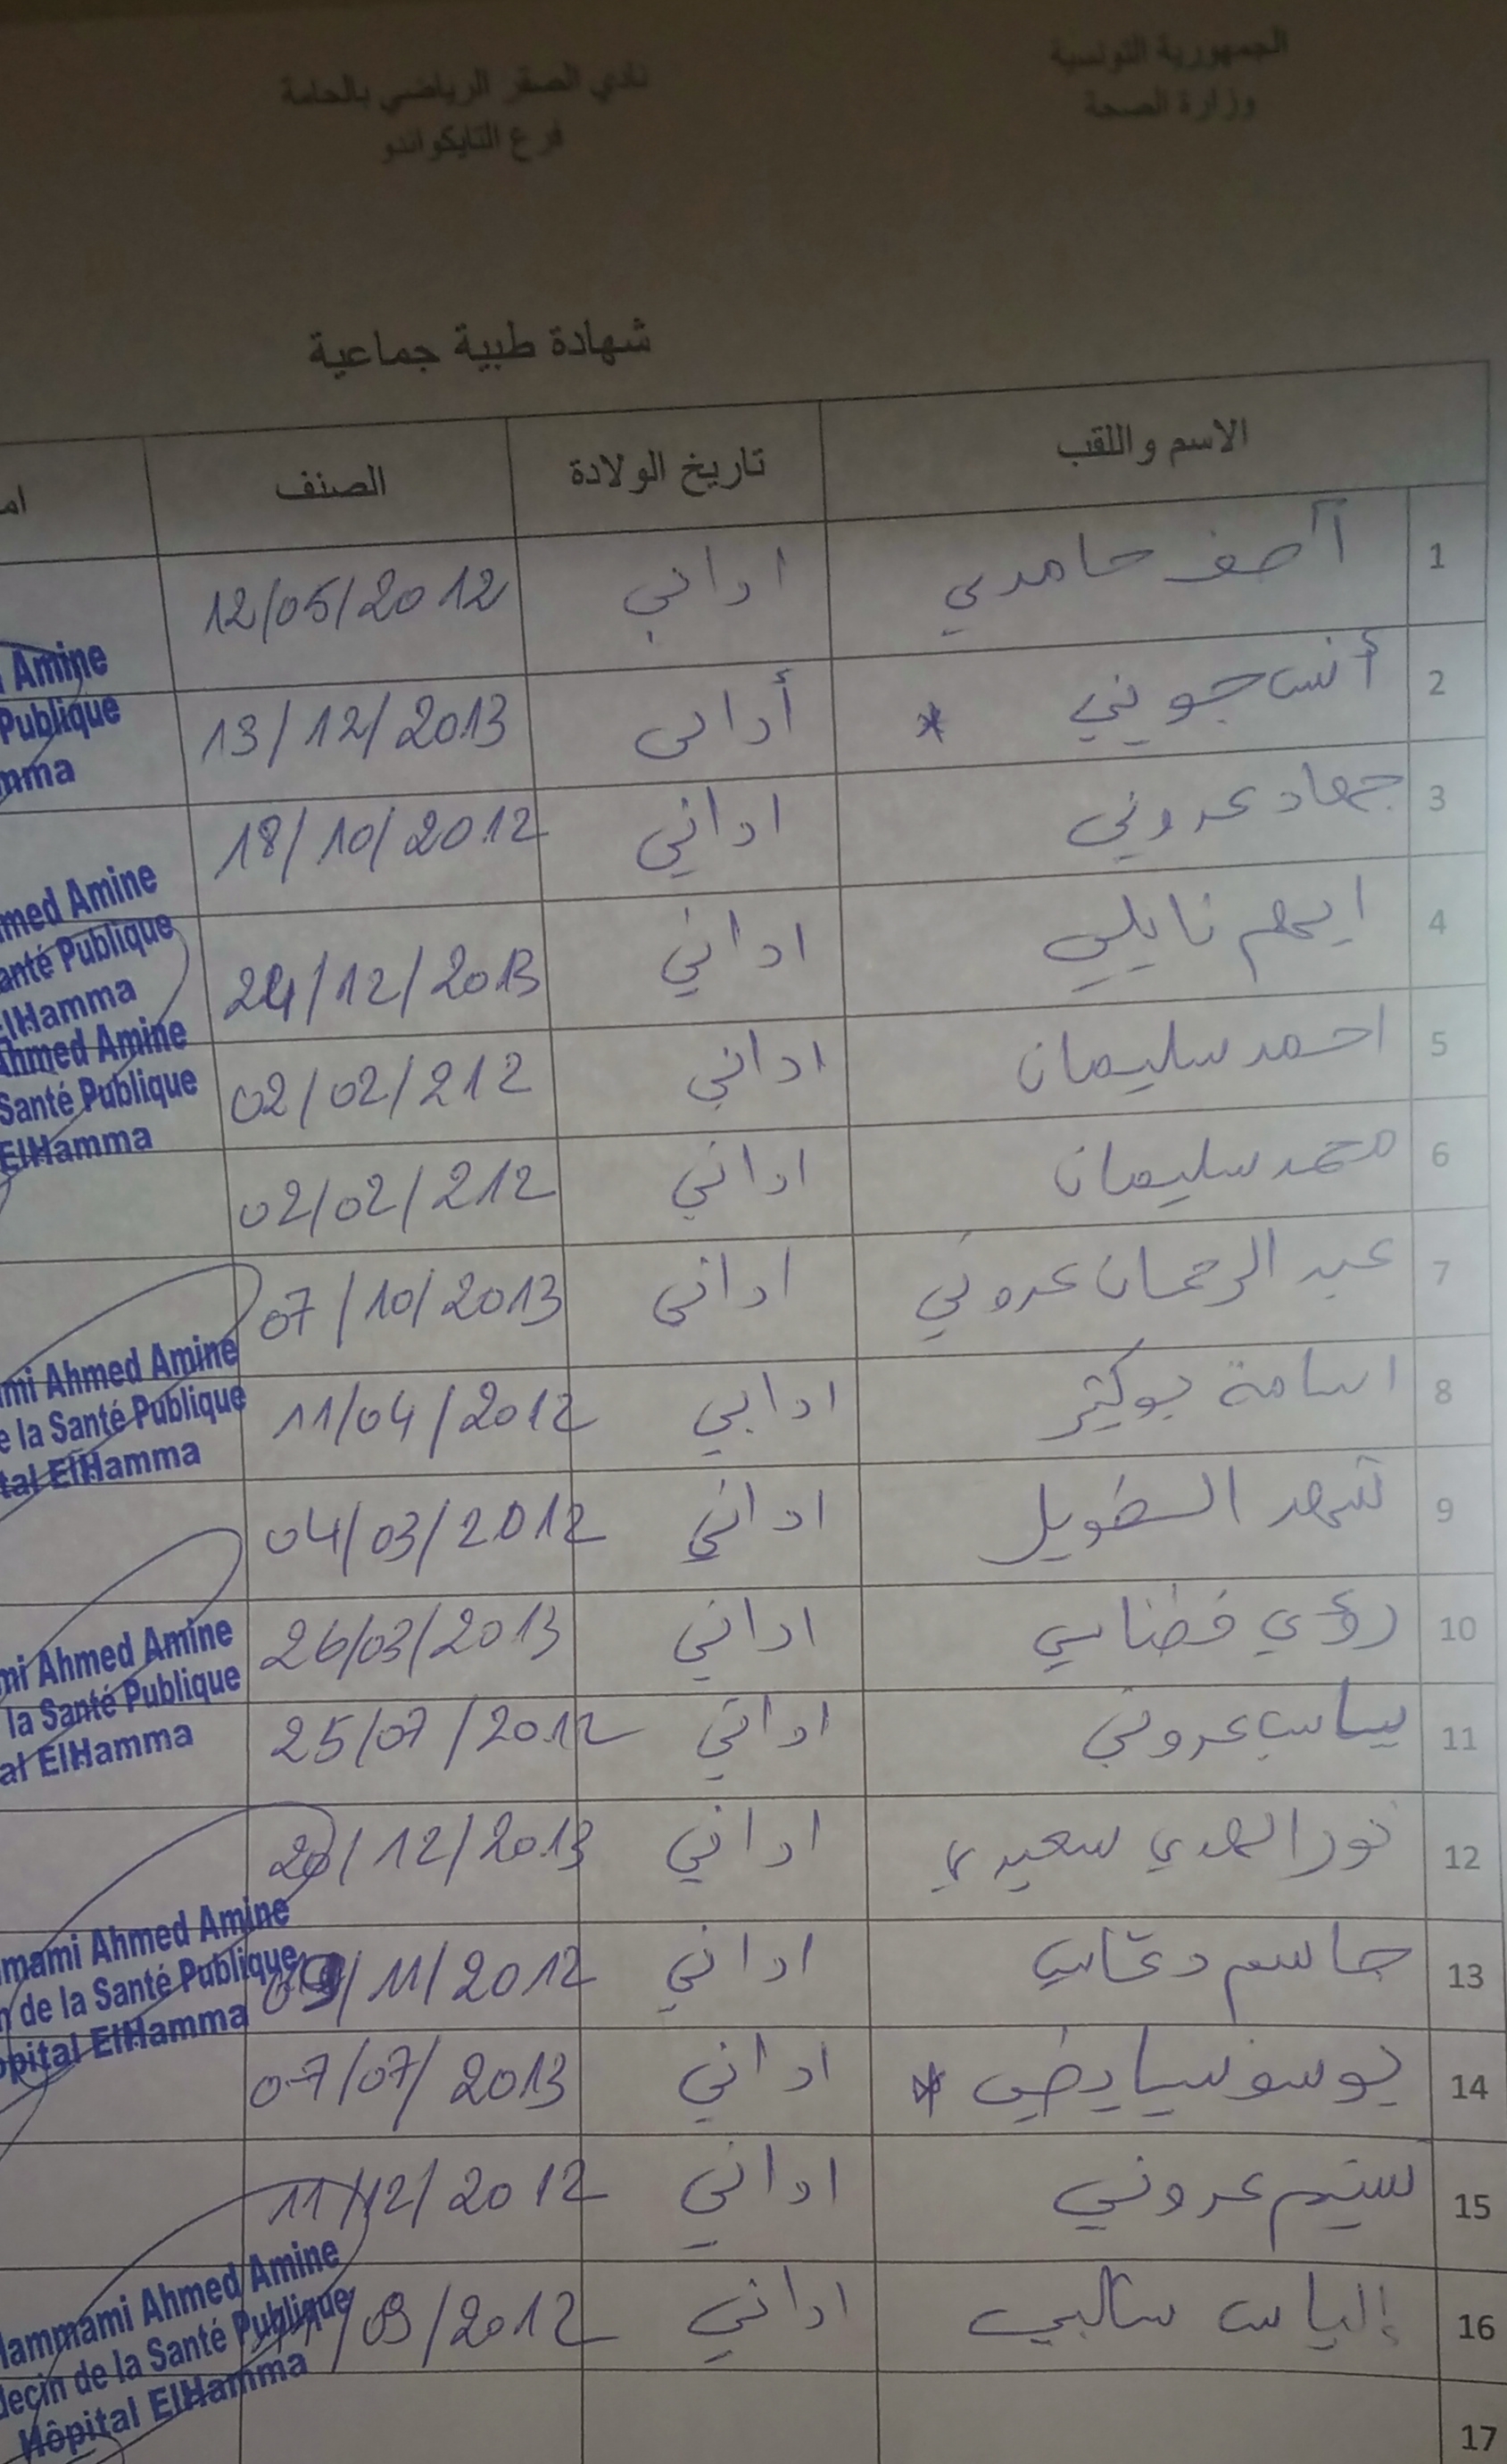 الجمهورية التونسية
وزارة الصحة
نادي الصقر الرياضي بالحامة
فرع التايكواندو
شهادة طبية جماعية
الاسم واللقب تاريخ الولادة الصنف ام
1 آصف حامدي اداني 12/05/2012
2 أنس جويني * أداني 13/12/2013
3 جهاد عدوني اداني 18/10/2012
4 ايهم نايلي اداني 24/12/2013
5 احمد سليمان اداني 02/02/212
6 محمد سليمان اداني 02/02/212
7 عبد الرحمان عدوني اداني 07/10/2013
8 اسامة بوكثير اداني 11/04/2012
9 شهد الطويل اداني 04/03/2012
10 رؤي اداني 26/03/2013
11 عدوني اداني 25/07/2012
12 نور الهدي سعيدي اداني 20/12/2013
13 جاسم اداني 09/11/2012
14 يوسف * اداني 07/07/2013
15 عدوني اداني 11/12/2012
16 إلياس اداني /09/2012
17
Amine
Publique
mma
med Amine
anté Publique
ElHamma
Ahmed Amine
Santé Publique
ElHamma
mi Ahmed Amine
e la Santé Publique
tal ElHamma
mi Ahmed Amine
la Santé Publique
al ElHamma
mami Ahmed Amine
n de la Santé Publique
opital ElHamma
Hammami Ahmed Amine
decin de la Santé Publique
Hôpital ElHamma